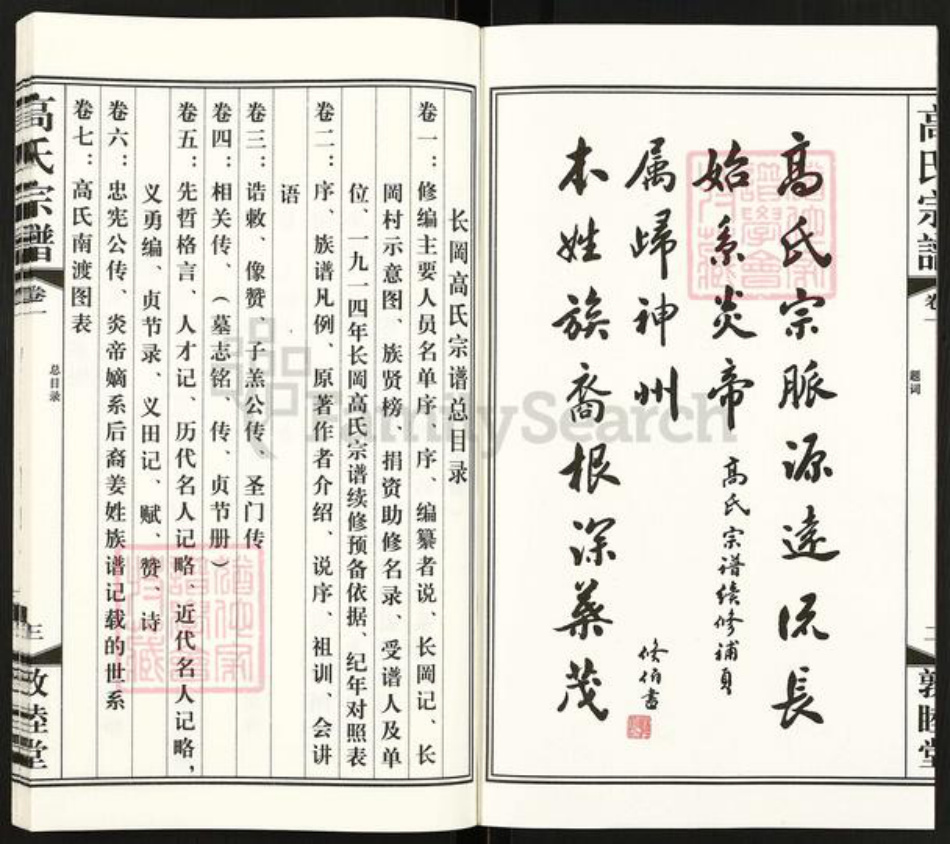 高氏宗譜
卷一
題词
二
敦睦堂
高氏宗脈源遠流長
始系炎帝
高氏宗谱续修補頁
属歸神州
本姓族裔根深葉茂
长岡高氏宗谱总目录
卷一：修编主要人员名单序、序、编纂者说、长岡记、长
岡村示意图、族贤榜、捐资助修名录、受谱人及单
位、一九一四年长岡高氏宗谱续修预备依据、纪年对照表
卷二：序、族谱凡例、原著作者介绍、说序、祖训、会讲
语
卷三：诰敕、像赞、子羔公传、圣门传
卷四：相关传、（墓志铭、传、贞节册）
卷五：先哲格言、人才记、历代名人记略、近代名人记略，
义勇编、贞节录、义田记、赋、赞、诗
卷六：忠宪公传、炎帝嫡系后裔姜姓族谱记载的世系
卷七：高氏南渡图表
高氏宗譜
卷一
总目录
三
敦睦堂
FamilySearch